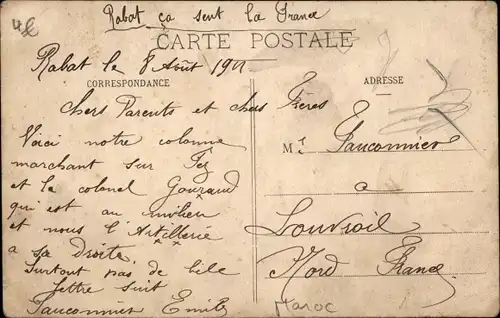 Rabat ça sent la France
CARTE POSTALE
Rabat le 8 Août 1911
CORRESPONDANCE
ADRESSE
chers Parents et chers Frères
Voici notre colonne
marchant sur Fez
et le colonel Gouraud
qui est au milieu
et nous l'Artillerie
a sa droite.
Surtout pas de bile
lettre suit
Fauconnier Emile
Mr Fauconnier
a
Louvroil
Nord France
Maroc